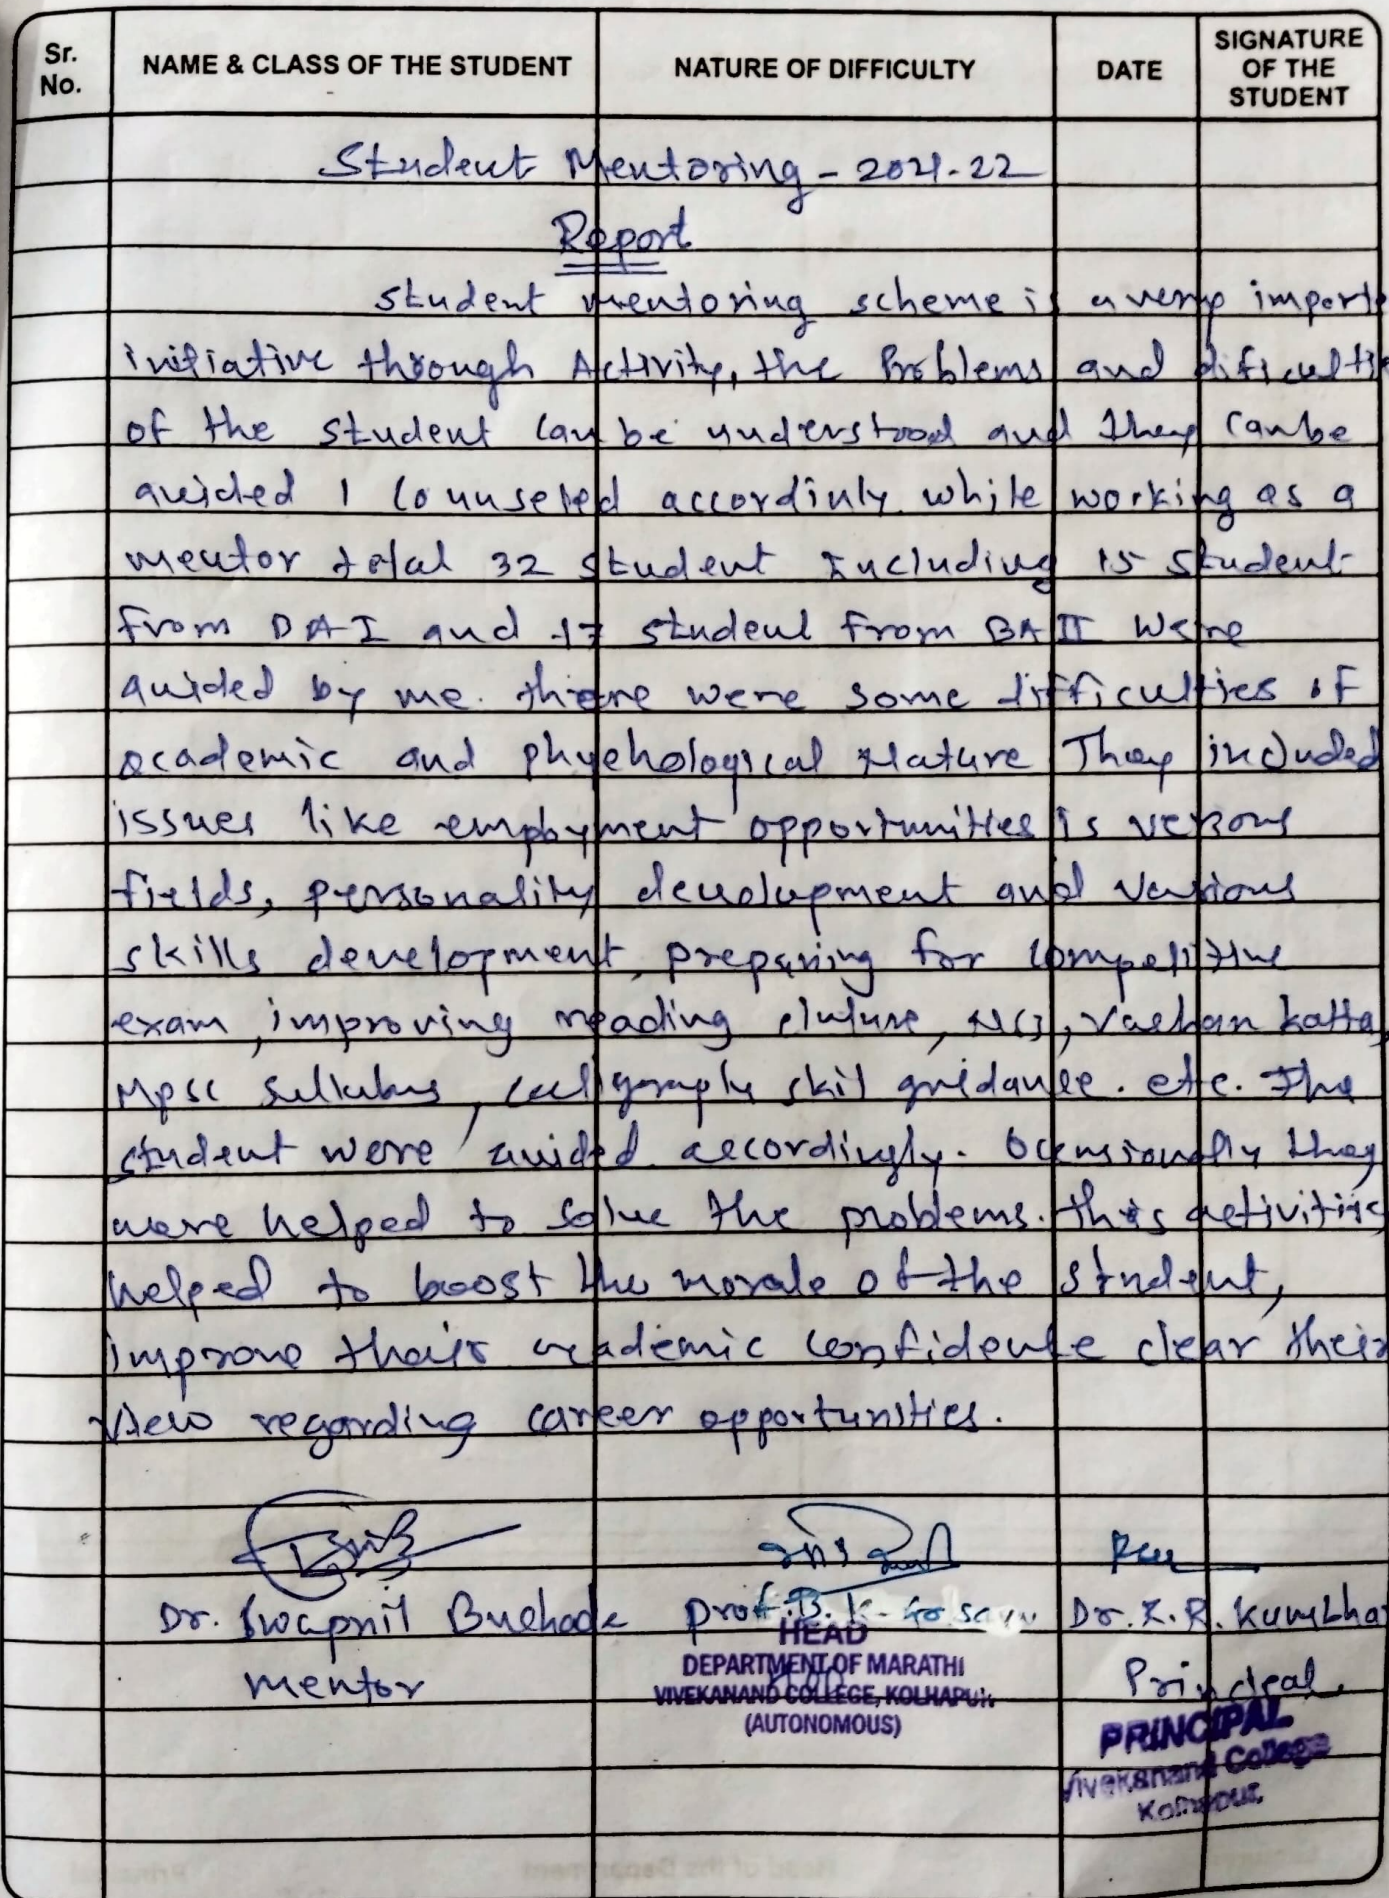 Sr. No.
NAME & CLASS OF THE STUDENT
NATURE OF DIFFICULTY
DATE
SIGNATURE OF THE STUDENT
Student Mentoring - 2021-22
Report
student mentoring scheme is a very importa
initiative through Activity, the Problems and dificultie
of the student can be understood and they can be
guided / counseled accordinly. while working as a
mentor total 32 student Including 15 student
from BAI and 17 student from BAII were
guided by me. there were some difficulties of
academic and phychological Nature They included
issues like employment opportunities is verious
fields, personality development and various
skills development, preparing for competitive
exam, improving reading cluture, Vachan katta,
Mpsc sullabus, calligraphy skil guidance. etc. The
student were guided accordingly. Occasionally they
were helped to solve the problems. this activities
helped to boost the morale of the student,
improve their academic confidence clear their
view regarding career opportunities.
Dr. Swapnil Buchade
mentor
Prof. B. K.
HEAD
DEPARTMENT OF MARATHI
VIVEKANAND COLLEGE, KOLHAPUR
(AUTONOMOUS)
Dr. R. R. Kumbha
Princieal.
PRINCIPAL
Vivekanand College
Kolhapur.